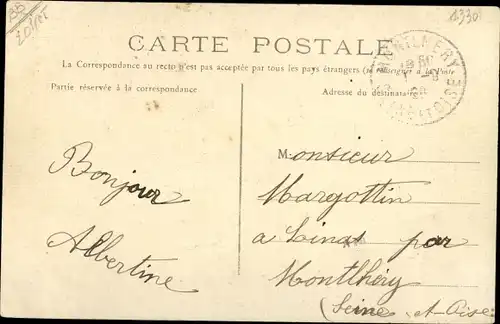 CARTE POSTALE
La Correspondance au recto n'est pas acceptée par tous les pays étrangers (se renseigner à la Poste
Partie réservée à la correspondance
Adresse du destinataire
Bonjour
Albertine
Monsieur
Margottin
a Linas par
Montlhéry
(Seine-et-Oise